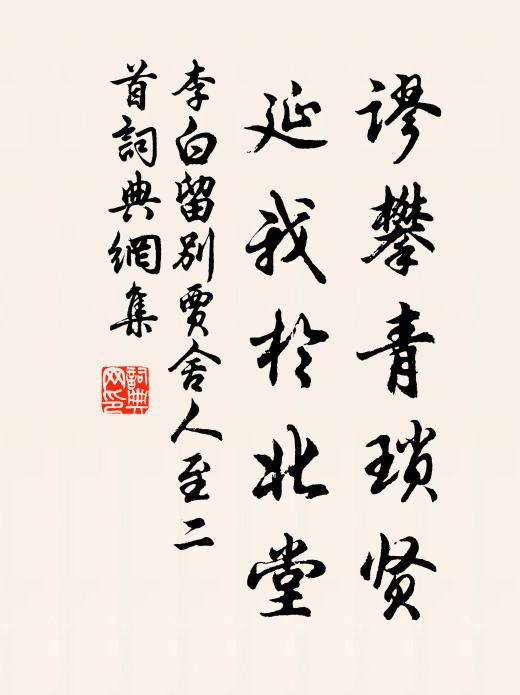 谬攀青瑣贤
延我於北堂
李白留别賈舍人至二
首詞典網集
詞典
网印